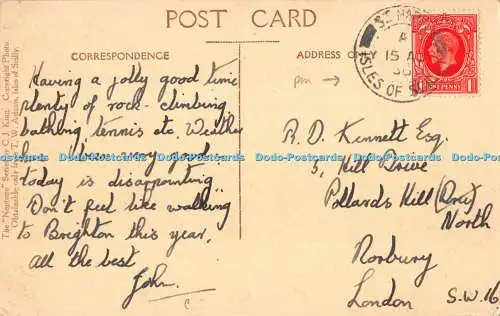 POST CARD
CORRESPONDENCE
ADDRESS ONLY
The "Neptune" Series by C. J. King. Copyright Photo.
Obtainable only from T. W. Adams, Isles of Scilly.
ST. MARY
A
15 AU
ISLES OF S
ONE PENNY
1
1
pm →
Having a jolly good time
plenty of rock-climbing
bathing tennis etc. Weather
has been very good;
today is disappointing.
Don't feel like walking
to Brighton this year.
All the best
John.
R. D. Kennett Esq.
5, Hill Drive
Pollards Hill
North
Norbury
London S.W.16.
Dodo-Postcards Dodo-Postcards Dodo-Postcards Dodo-Postcards Dodo-Postcards